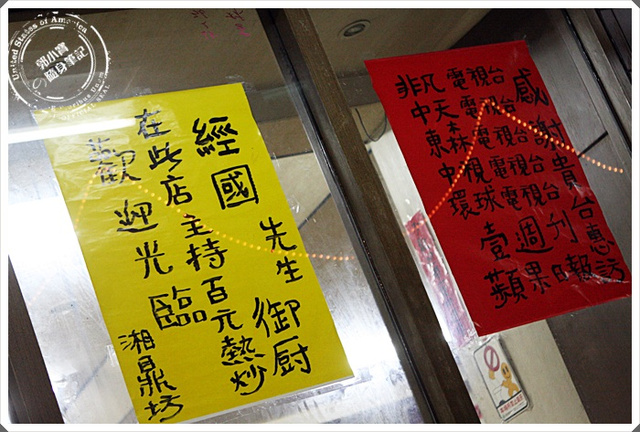 United States of America
郭小寶
の隨身筆記
經國先生御厨
在此店主持百元熱炒
歡迎光臨
湘鼎坊
感謝貴台惠訪
非凡電視台
中天電視台
東森電視台
中視電視台
環球電視台
壹週刊
蘋果日報